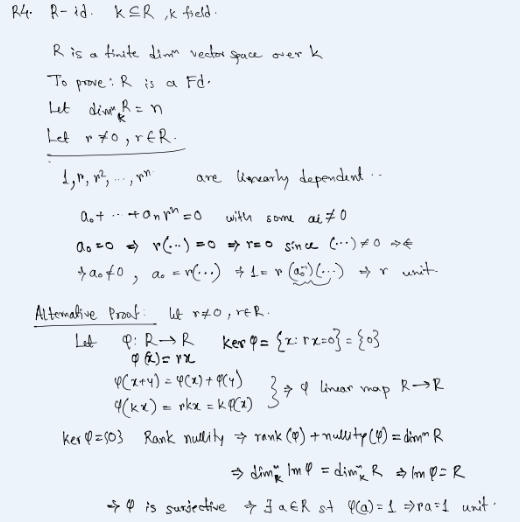 R4. R-id. k ⊆ R, k field.
R is a finite dimn vector space over k
To prove: R is a Fd.
Let dimn_k R = n
Let r ≠ 0, r ∈ R.
1, r, r², ..., rⁿ are linearly dependent ..
a₀ + .. + aₙrⁿ = 0 with some ai ≠ 0
a₀ = 0 ⇒ r(...) = 0 ⇒ r = 0 since (...) ≠ 0 ⇒⇐
⇒ a₀ ≠ 0, a₀ = r(...) ⇒ 1 = r (a₀⁻¹)(...) ⇒ r unit.
Alternative Proof: let r ≠ 0, r ∈ R.
Let φ: R → R ker φ = {x: rx = 0} = {0}
φ(x) = rx
φ(x+y) = φ(x) + φ(y)
φ(kx) = rkx = kφ(x) } ⇒ φ linear map R → R
ker φ = {0} Rank nullity ⇒ rank(φ) + nullity(φ) = dimn R
⇒ dimn_k Im φ = dimn_k R ⇒ Im φ = R
⇒ φ is surjective ⇒ ∃ a ∈ R st φ(a) = 1 ⇒ ra = 1 unit.